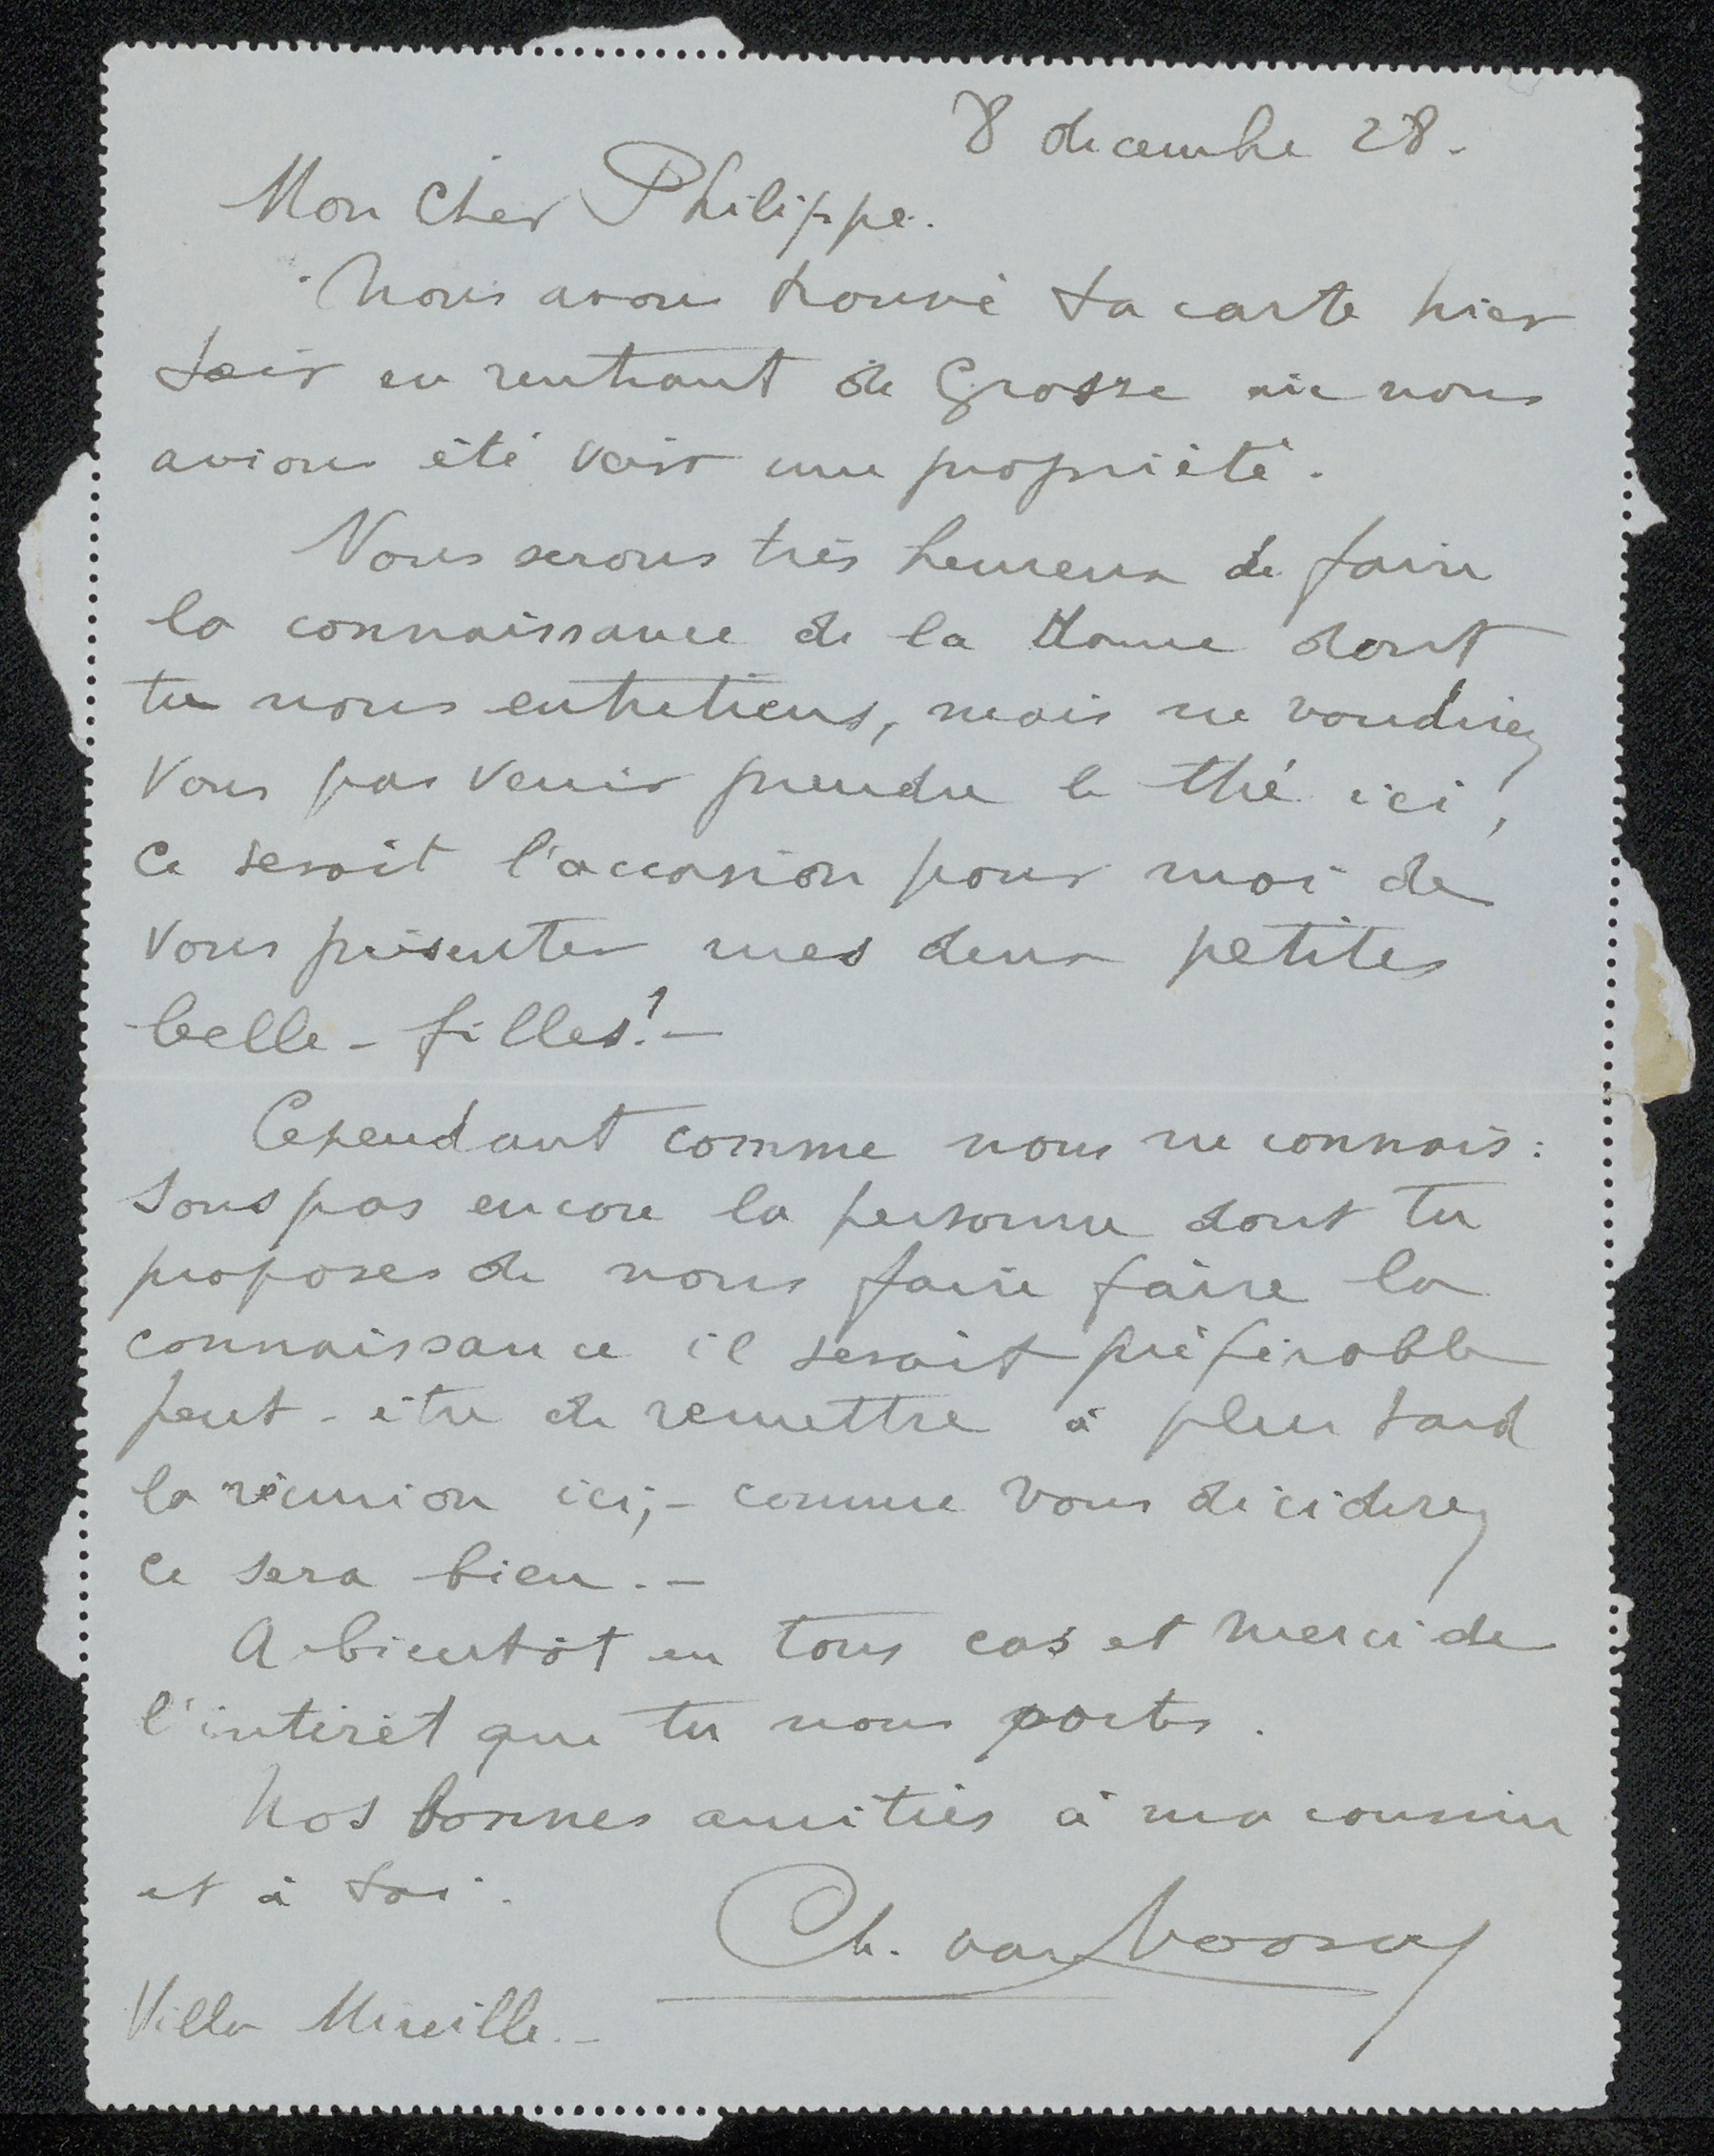 8 decembre 28.
Mon Cher Philippe.
Nous avons trouvé ta carte hier
soir en rentrant de Grasse où nous
avions été voir une propriété.
Nous serons très heureux de faire
la connaissance de la dame dont
tu nous entretiens, mais ne voudriez
vous pas venir prendre le thé ici,
ce serait l'occasion pour moi de
vous présenter mes deux petites
belle-filles!-
Cependant comme nous ne connais:
sons pas encore la personne dont tu
proposes de nous faire faire la
connaissance il serait préférable
peut-être de remettre à plus tard
la réunion ici;- comme vous déciderez
ce sera bien.-
A bientôt en tous cas et merci de
l'intérêt que tu nous portes.
Nos bonnes amitiés à ma cousine
et à toi.
Ch. van
Villa Mireille.-